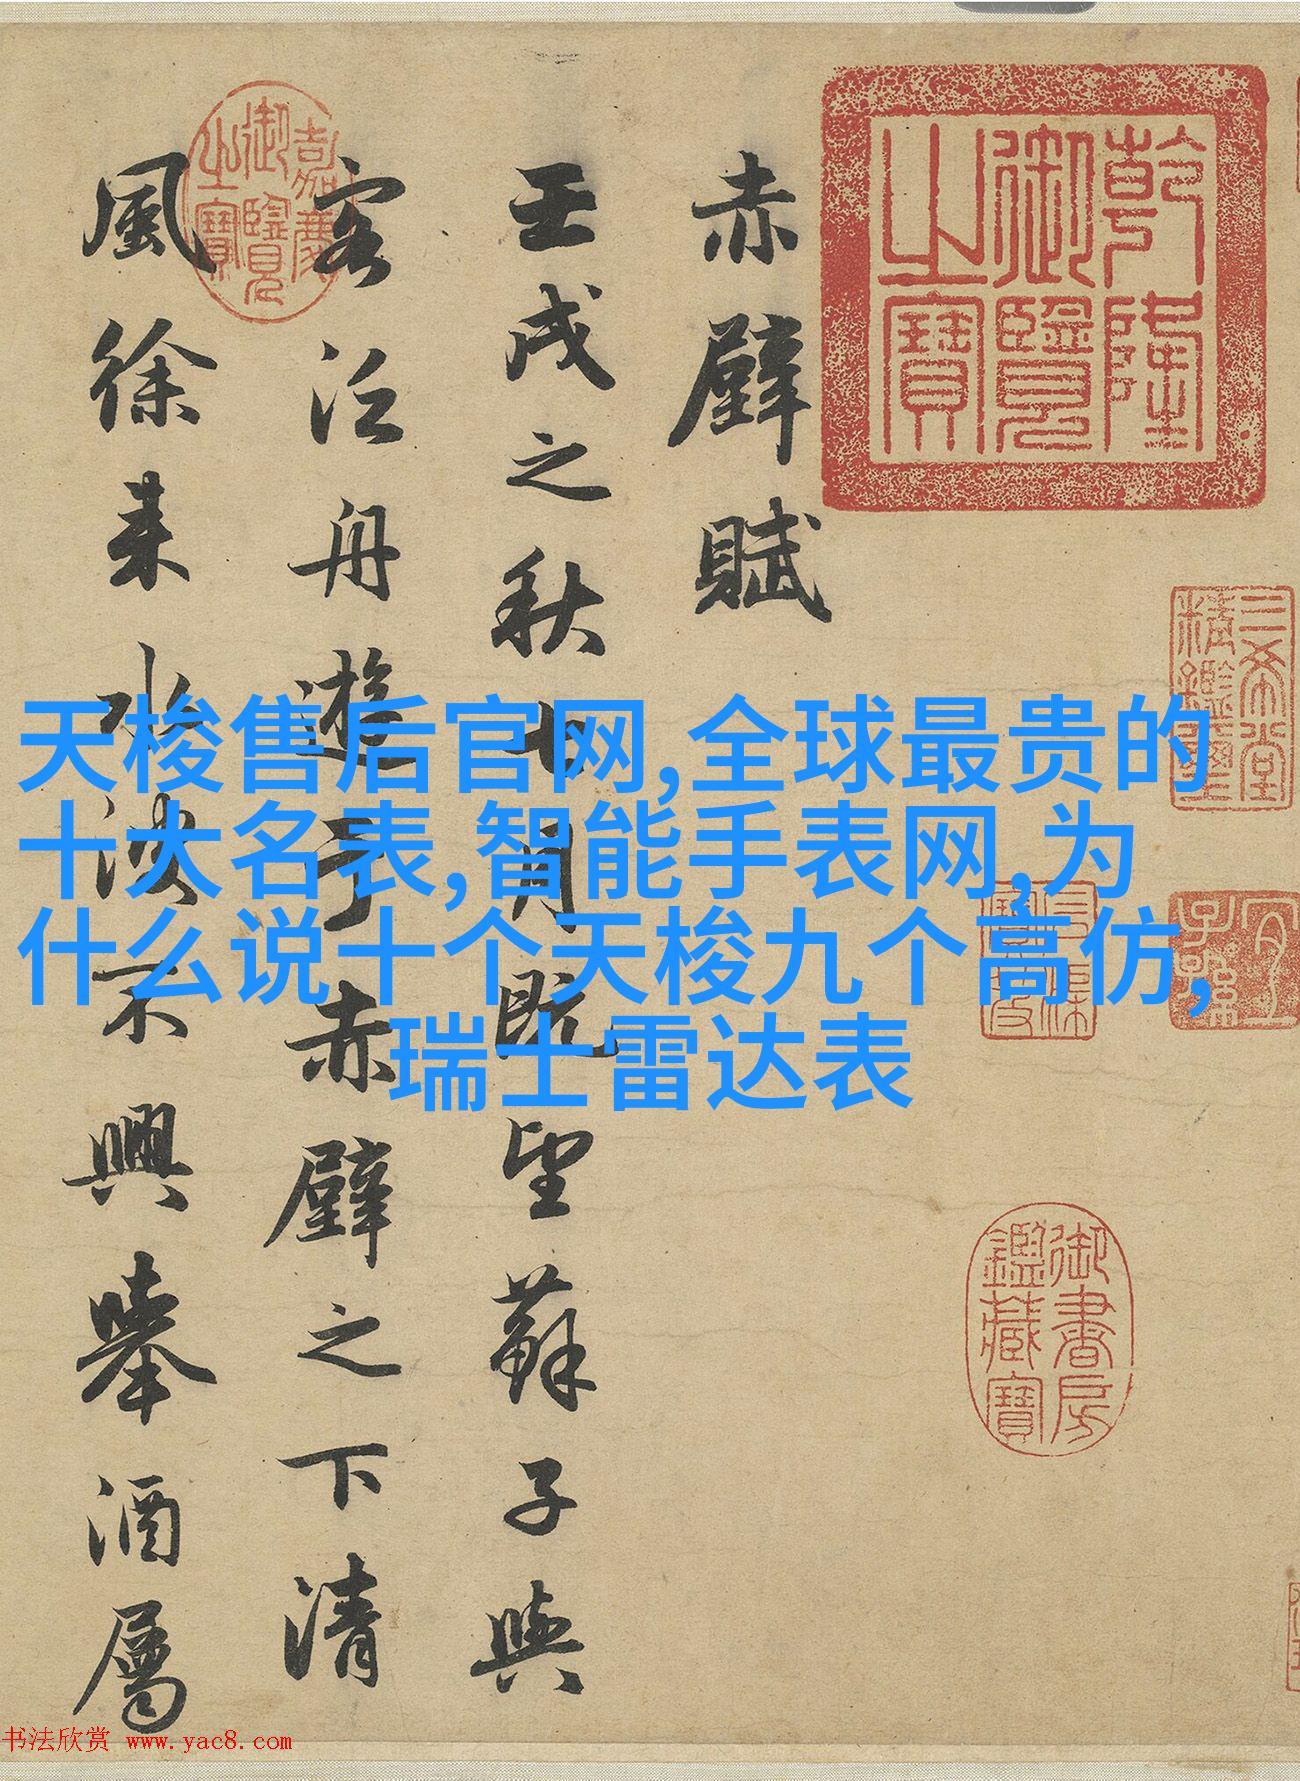 乾隆
御覽
之寶
三希堂
精鑑璽
宜
子孫
御書房
鑑藏寶
赤壁賦
壬戌之秋七月既望蘇子與
客泛舟遊于赤壁之下清
風徐来水波不興舉酒屬
嘉慶
御覽
之寶
天梭售后官网,全球最贵的
十大名表,智能手表网,为
什么说十个天梭九个高仿,
瑞士雷达表
书法欣赏 www.yac8.com